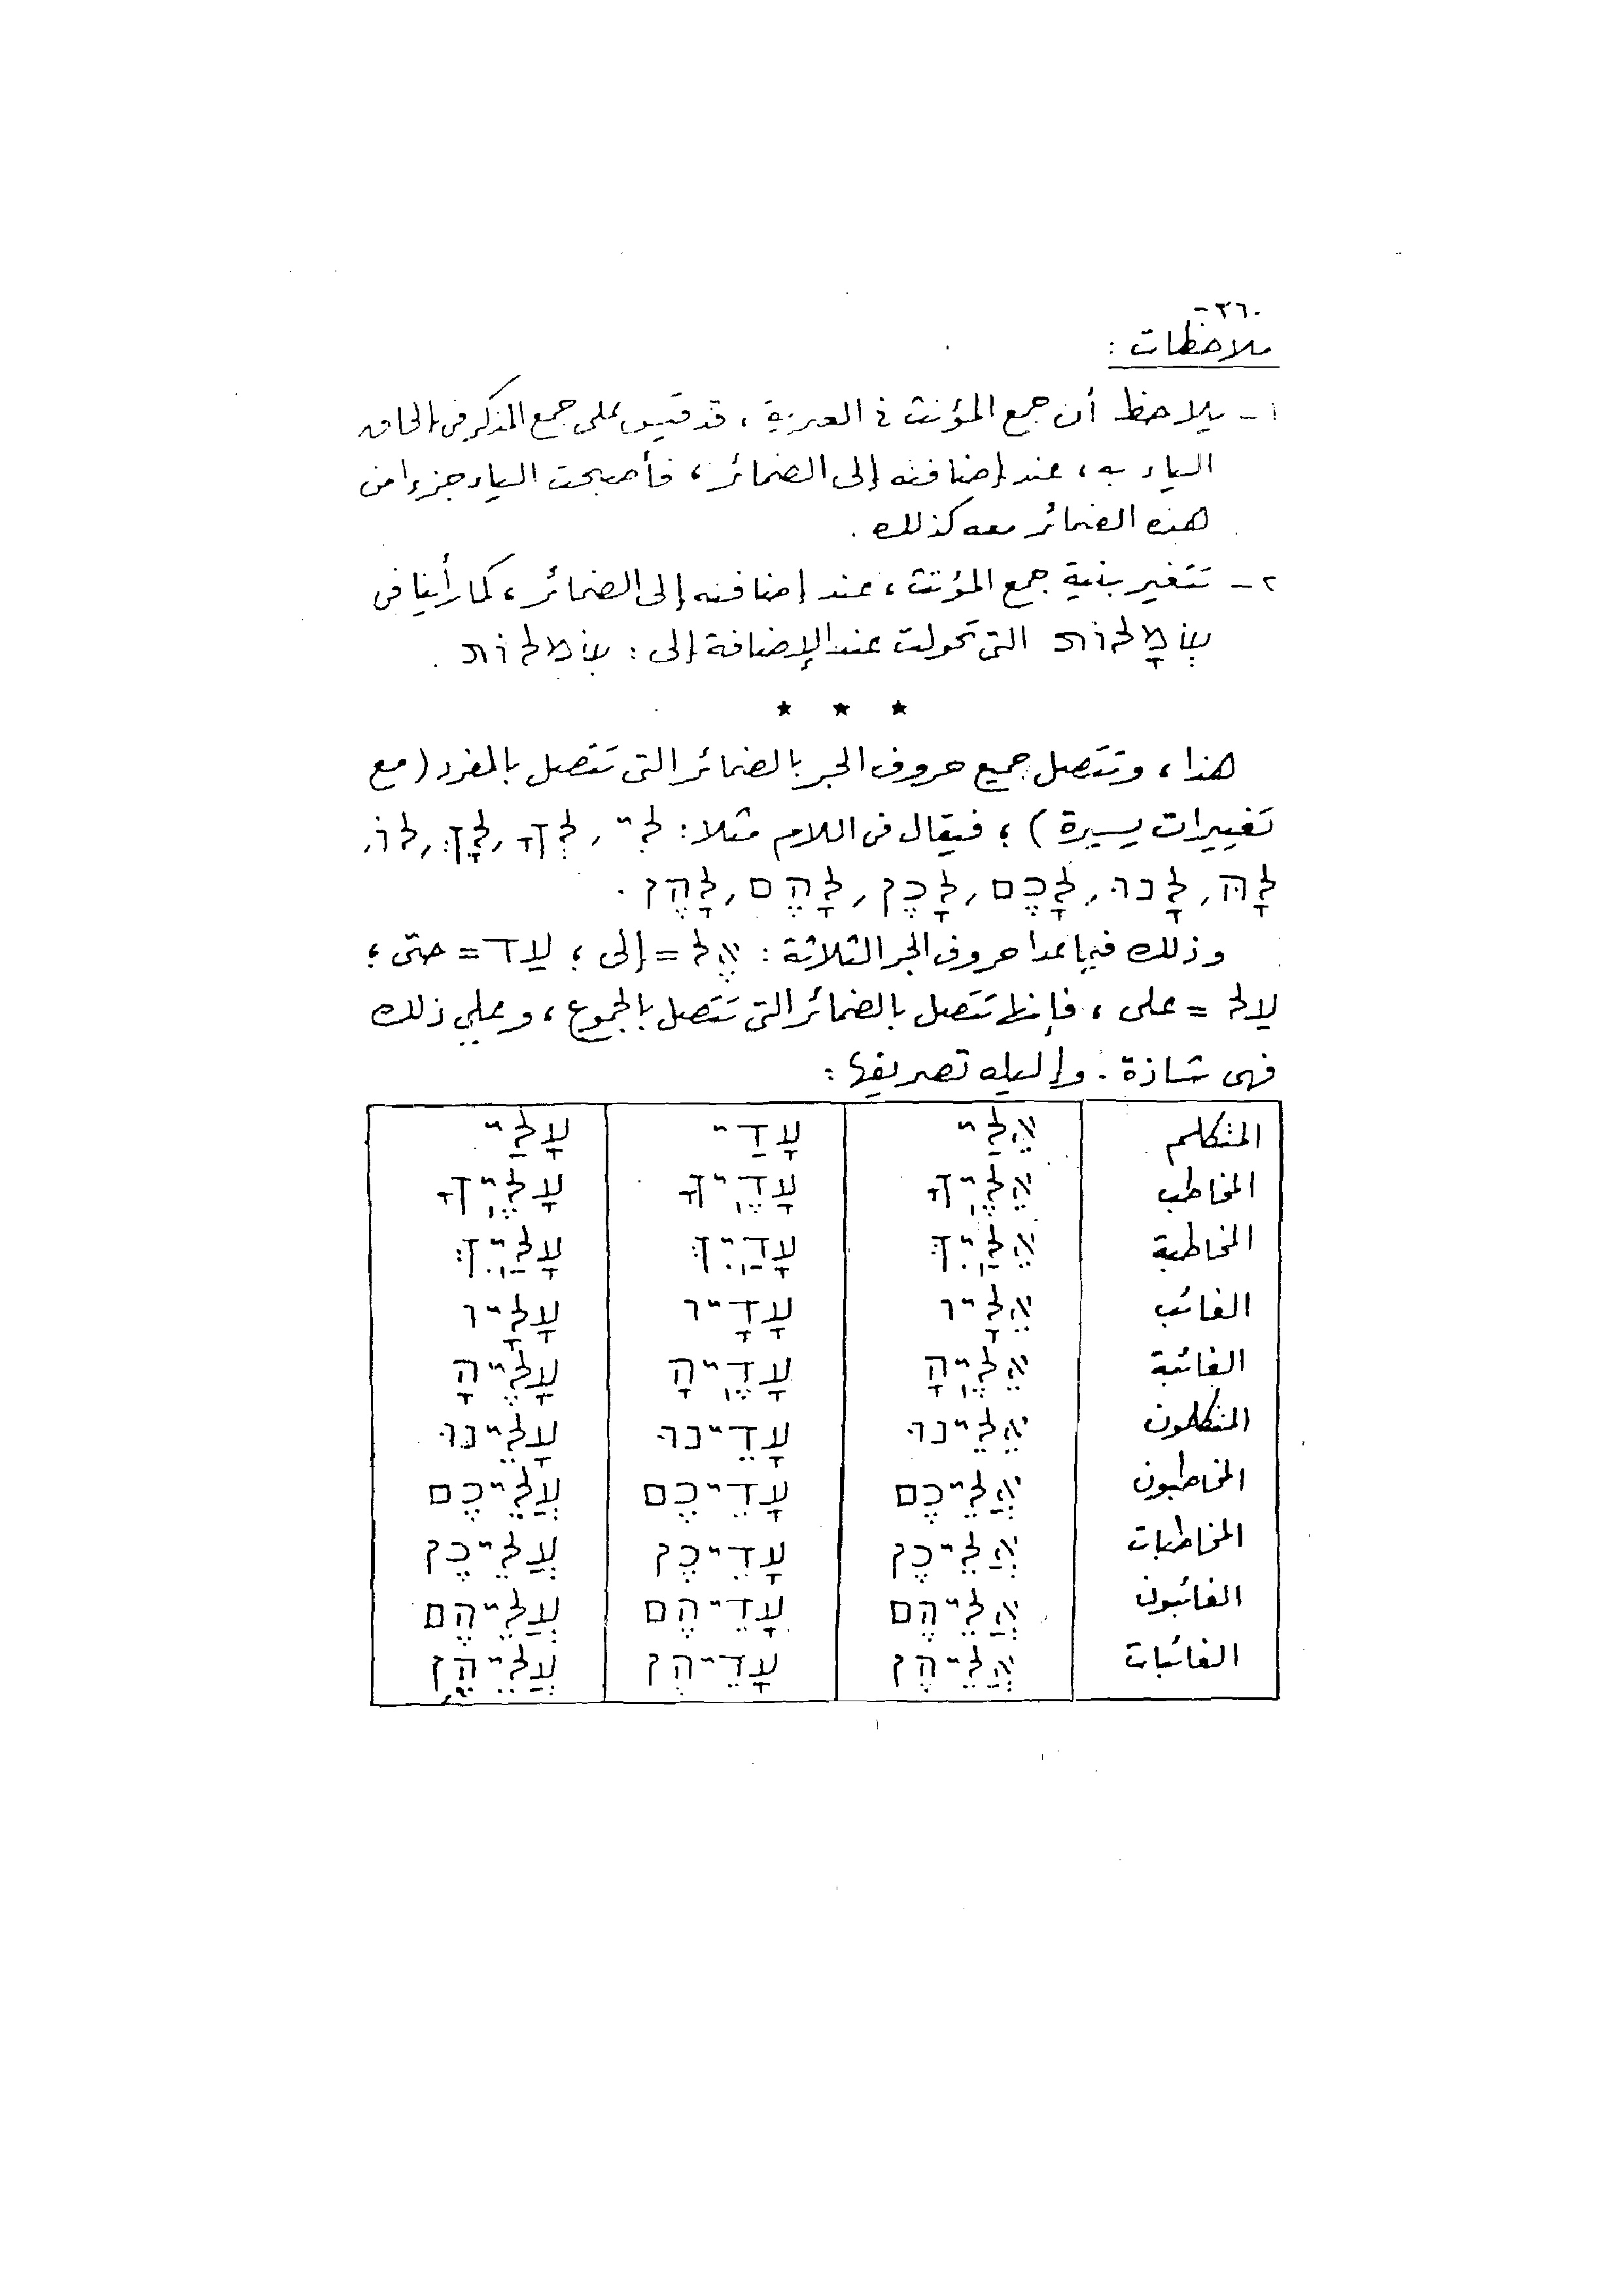 -٢٦٠
ملاحظات :
١ - يلاحظ أن جمع المؤنث فى العبرية ، قد قيس على جمع المذكر فى إلحاق
الياء به ، عند إضافته إلى الضمائر ، فأصبحت الياء جزءا من
هذه الضمائر معه كذلك .
٢ - تتغير بنية جمع المؤنث ، عند إضافته إلى الضمائر ، كما رأينا فى
שְׂמָלוֹת التى تحولت عند الإضافة إلى : שׂמלוֹת .
★ ★ ★
هذا ، وتتصل جميع حروف الجر بالضمائر التى تتصل بالمفرد ( مع
تغييرات يسيرة ) ؛ فيقال فى اللام مثلا : לִי , לְךָ , לָךְ , לוֹ ,
לָהּ , לָנוּ , לָכֶם , לָכֶן , לָהֶם , לָהֶן .
وذلك فيما عدا حروف الجر الثلاثة : אֶל = إلى ؛ עַד = حتى ؛
עַל = على ، فإنها تتصل بالضمائر التى تتصل بالجموع ، وعلى ذلك
فهى شاذة . وإليك تصريفها :
المتكلم אֵלַי עָדַי עָלַי
المخاطب אֵלֶיךָ עָדֶיךָ עָלֶיךָ
المخاطبة אֵלַיִךְ עָדַיִךְ עָלַיִךְ
الغائب אֵלָיו עָדָיו עָלָיו
الغائبة אֵלֶיהָ עָדֶיהָ עָלֶיהָ
المتكلمون אֵלֵינוּ עָדֵינוּ עָלֵינוּ
المخاطبون אֲלֵיכֶם עָדֵיכֶם עֲלֵיכֶם
المخاطبات אֲלֵיכֶן עָדֵיכֶן עֲלֵיכֶן
الغائبون אֲלֵיהֶם עָדֵיהֶם עֲלֵיהֶם
الغائبات אֲלֵיהֶן עָדֵיהֶן עֲלֵיהֶן